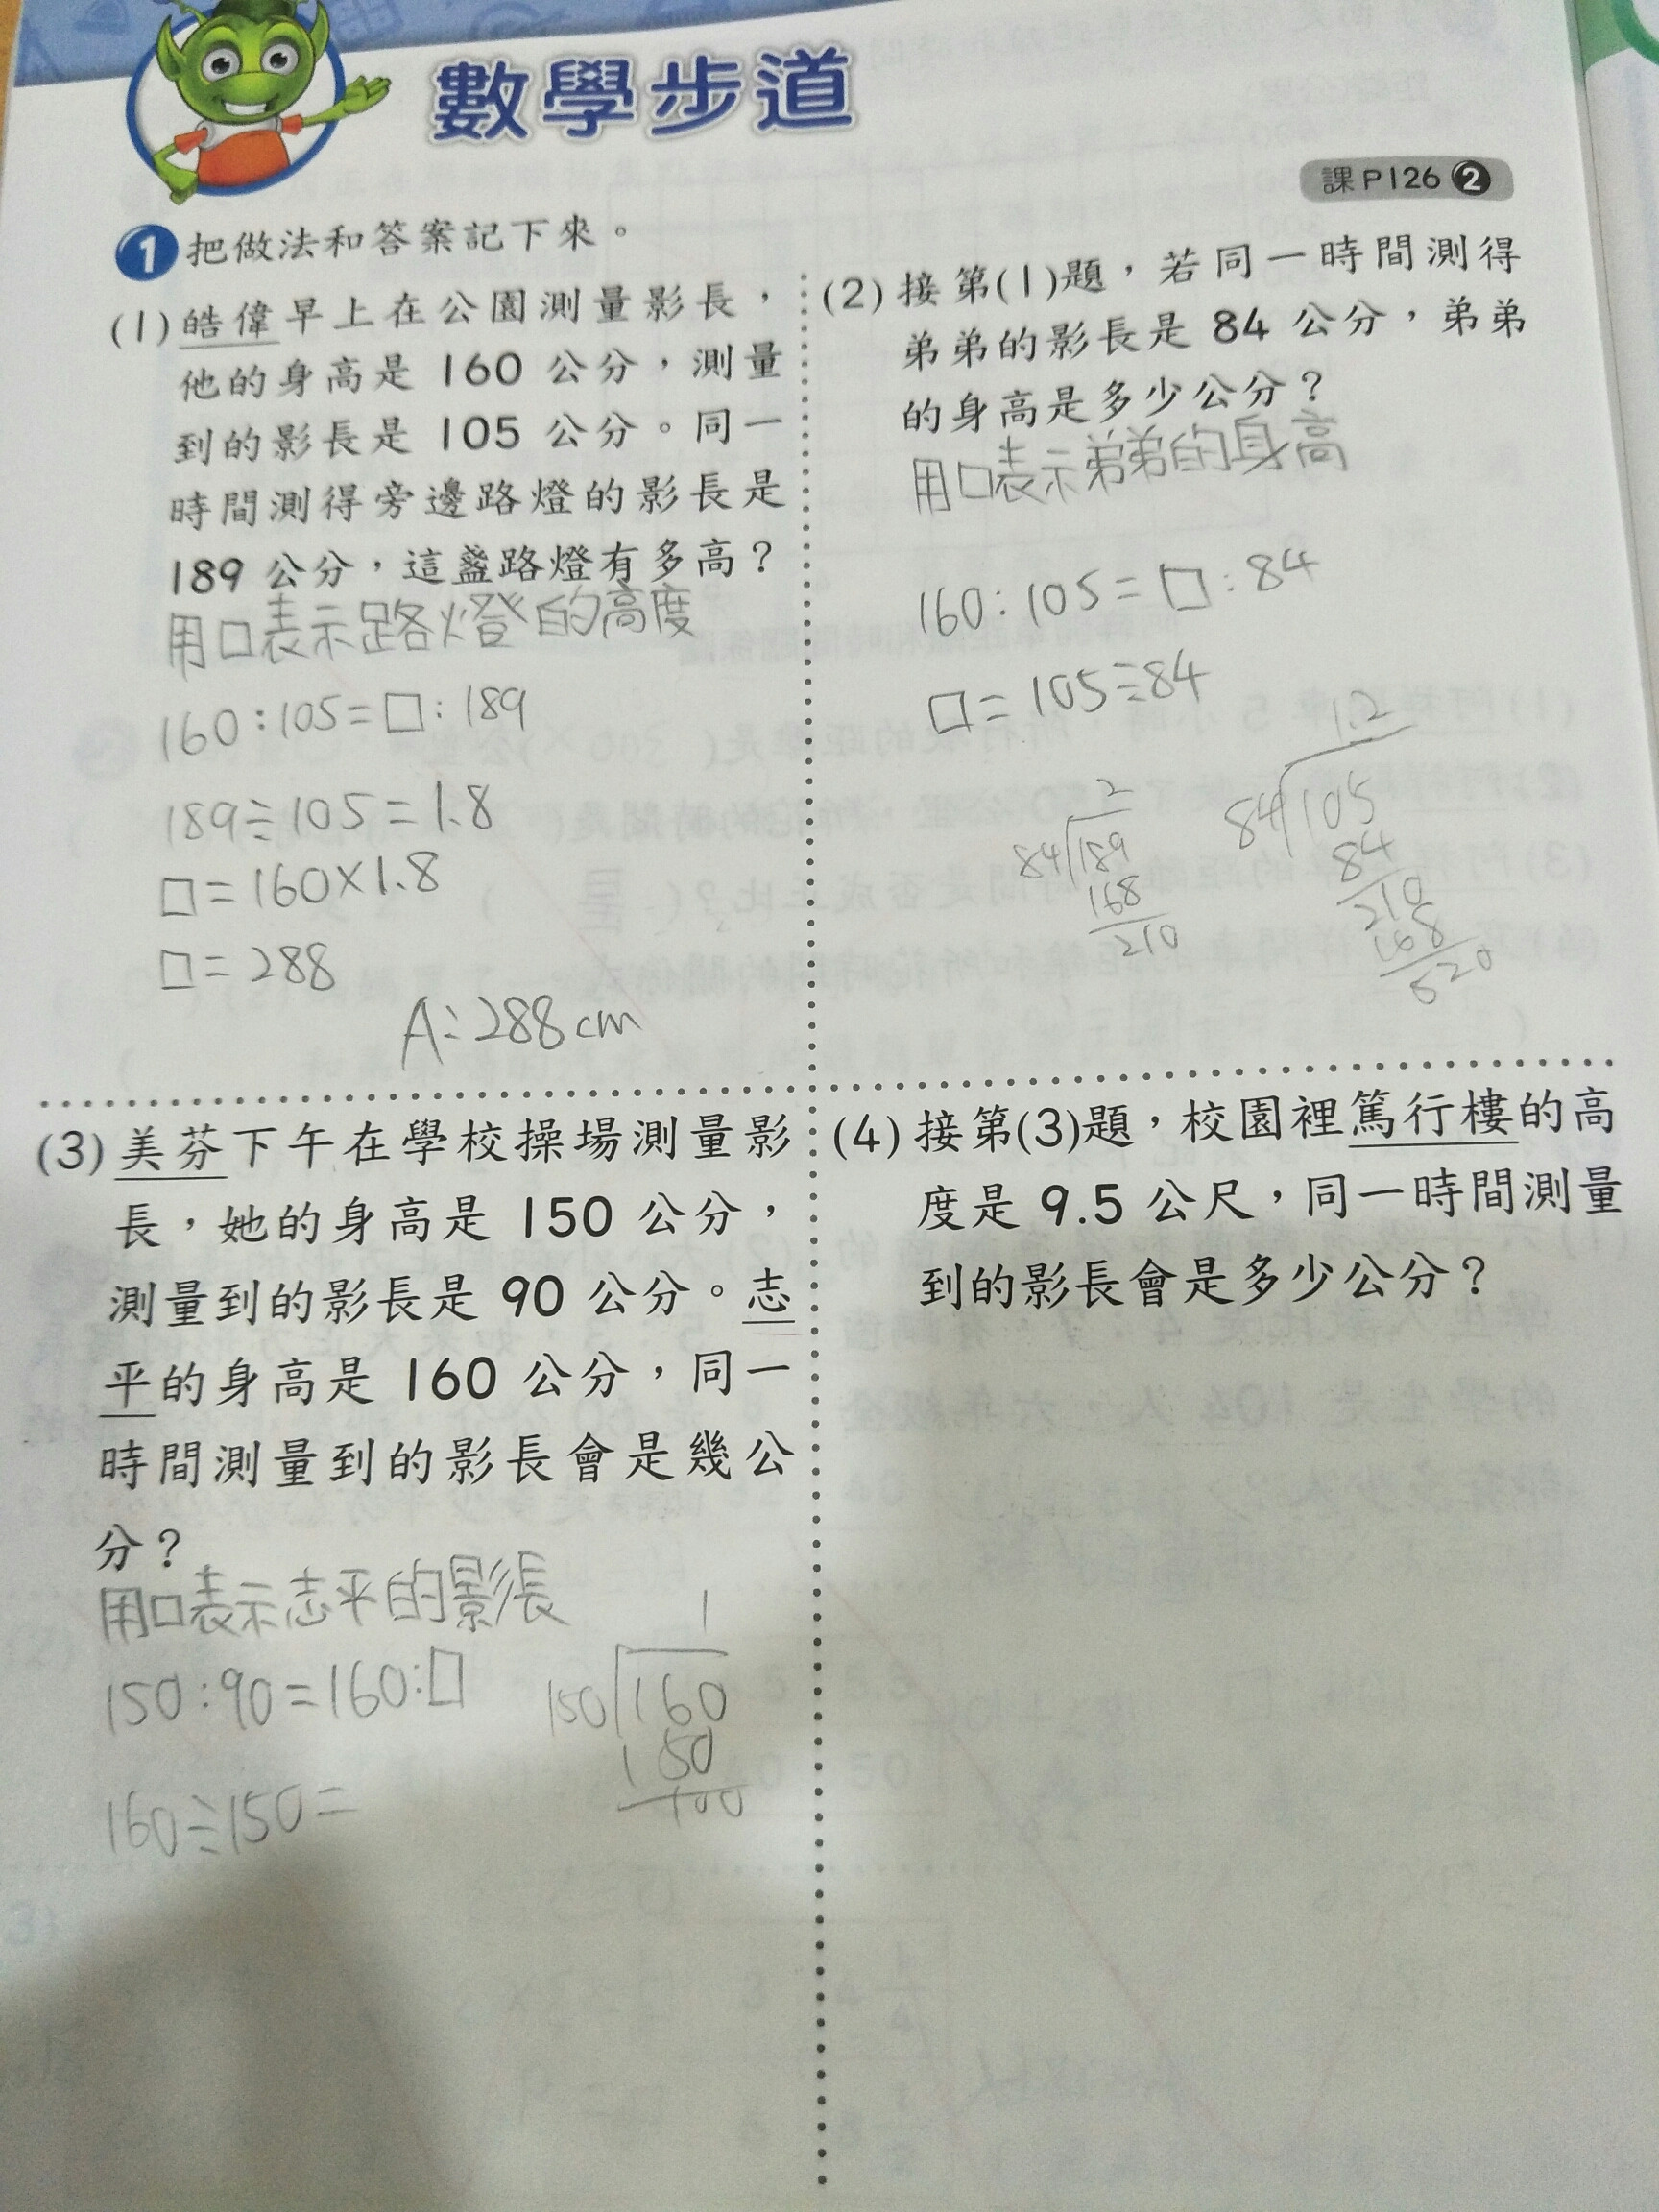 數學步道
課P126 2
1 把做法和答案記下來。
(1) 皓偉早上在公園測量影長，
他的身高是 160 公分，測量
到的影長是 105 公分。同一
時間測得旁邊路燈的影長是
189 公分，這盞路燈有多高？
用口表示路燈的高度
160:105=□:189
189÷105=1.8
□=160×1.8
□=288
A:288cm
(2) 接第(1)題，若同一時間測得
弟弟的影長是 84 公分，弟弟
的身高是多少公分？
用口表示弟弟的身高
160:105=□:84
□=105÷84
2
84 189
168
210
1.2
84 105
84
210
168
(3) 美芬下午在學校操場測量影
長，她的身高是 150 公分，
測量到的影長是 90 公分。志
平的身高是 160 公分，同一
時間測量到的影長會是幾公
分？
用口表示志平的影長
150:90=160:□
160÷150=
1
150 160
150
100
(4) 接第(3)題，校園裡篤行樓的高
度是 9.5 公尺，同一時間測量
到的影長會是多少公分？